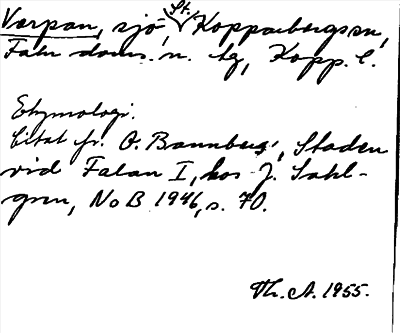 Varpan, sjö, St. Kopparbergs sn,
Falu doms. n. tg, Kopp. l.
Etymologi.
Citat fr. O. Bannberg, Staden
vid Falan I, hos J. Sahl-
gren, NoB 1946, s. 70.
Th. A. 1955.